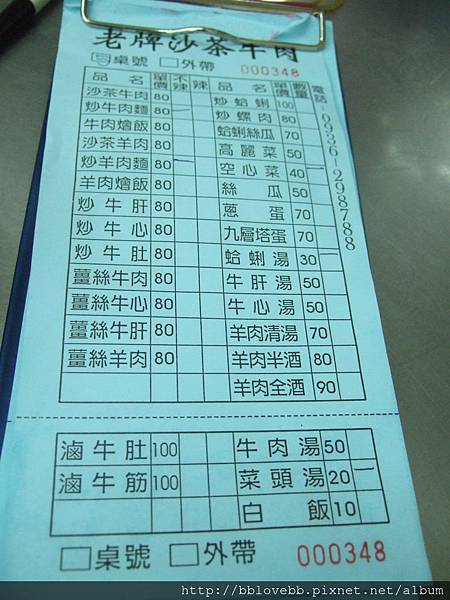 老牌沙茶牛肉
桌號 外帶 000348
品名 單價 不辣 辣 品名 單價 數量
電話:0936-298788
沙茶牛肉 80 炒蛤蜊 100
炒牛肉麵 80 一 炒螺肉 80
牛肉燴飯 80 蛤蜊絲瓜 70
沙茶羊肉 80 高麗菜 50
炒羊肉麵 80 一 空心菜 40 一
羊肉燴飯 80 絲瓜 50
炒牛肝 80 蔥蛋 70
炒牛心 80 九層塔蛋 70
炒牛肚 80 蛤蜊湯 30 一
薑絲牛肉 80 牛肝湯 50
薑絲牛心 80 牛心湯 50
薑絲牛肝 80 羊肉清湯 70
薑絲羊肉 80 羊肉半酒 80
羊肉全酒 90
滷牛肚 100 牛肉湯 50
滷牛筋 100 菜頭湯 20 一
白飯 10
桌號 外帶 000348
http://bblovebb.pixnet.net/album